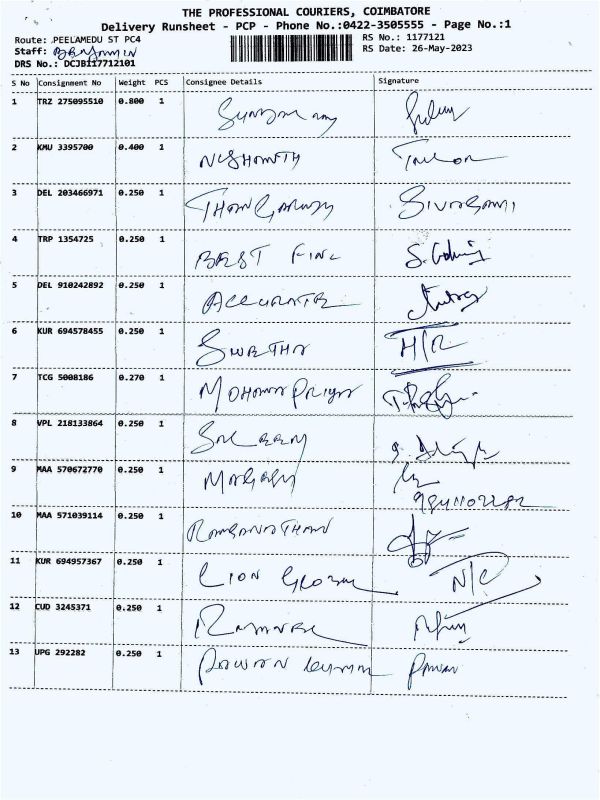 THE PROFESSIONAL COURIERS, COIMBATORE
Delivery Runsheet - PCP - Phone No.:0422-3505555 - Page No.:1
Route: PEELAMEDU ST PC4 RS No.: 1177121
Staff: BENJAMIN RS Date: 26-May-2023
DRS No.: DCJB117712101
S No Consignment No Weight PCS Consignee Details Signature
1 TRZ 275095510 0.800 1
2 KMU 3395700 0.400 1 NISHANTH
3 DEL 203466971 0.250 1 Sivagami
4 TRP 1354725 0.250 1 BEST FINC
5 DEL 910242892 0.250 1 ACCURATE
6 KUR 694578455 0.250 1 SWETHA H/R
7 TCG 5008186 0.270 1 MOHANA PRIYA
8 VPL 218133864 0.250 1
9 MAA 570672770 0.250 1
10 MAA 571039114 0.250 1 RAMANATHAN
11 KUR 694957367 0.250 1 LION GLOBAL N/C
12 CUD 3245371 0.250 1 RAMNESH
13 UPG 292282 0.250 1 PAWAN KUMAR Pawan